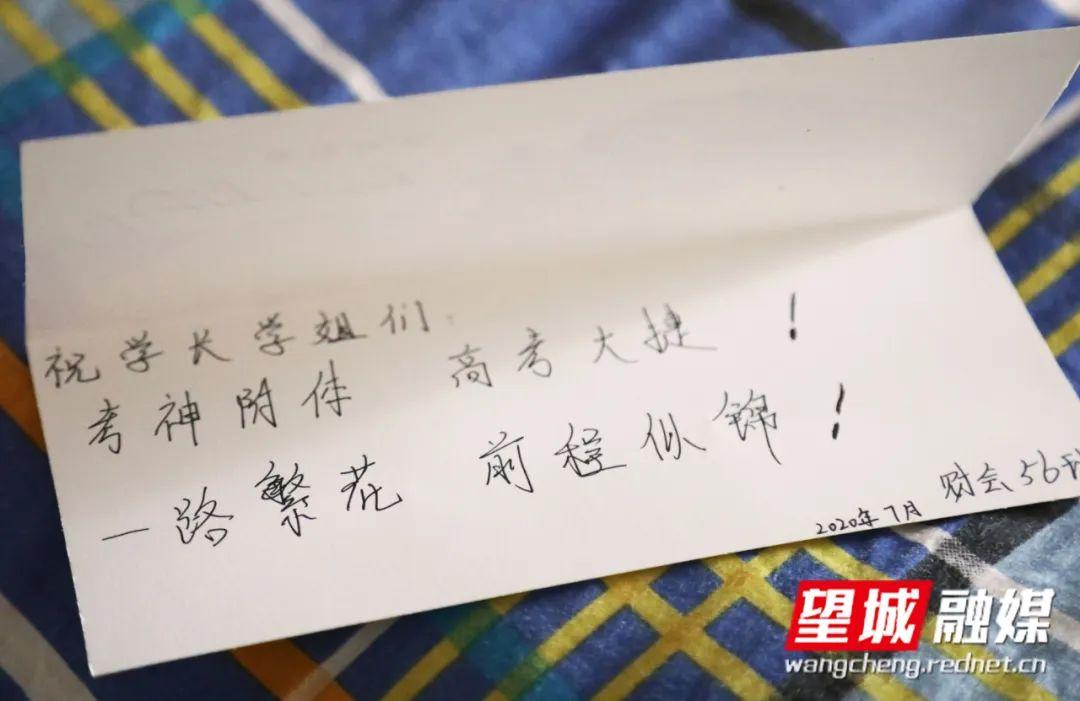 祝学长学姐们:
考神附体 高考大捷!
一路繁花 前程似锦!
2020年7月 财会56班
望城融媒
wangcheng.rednet.cn